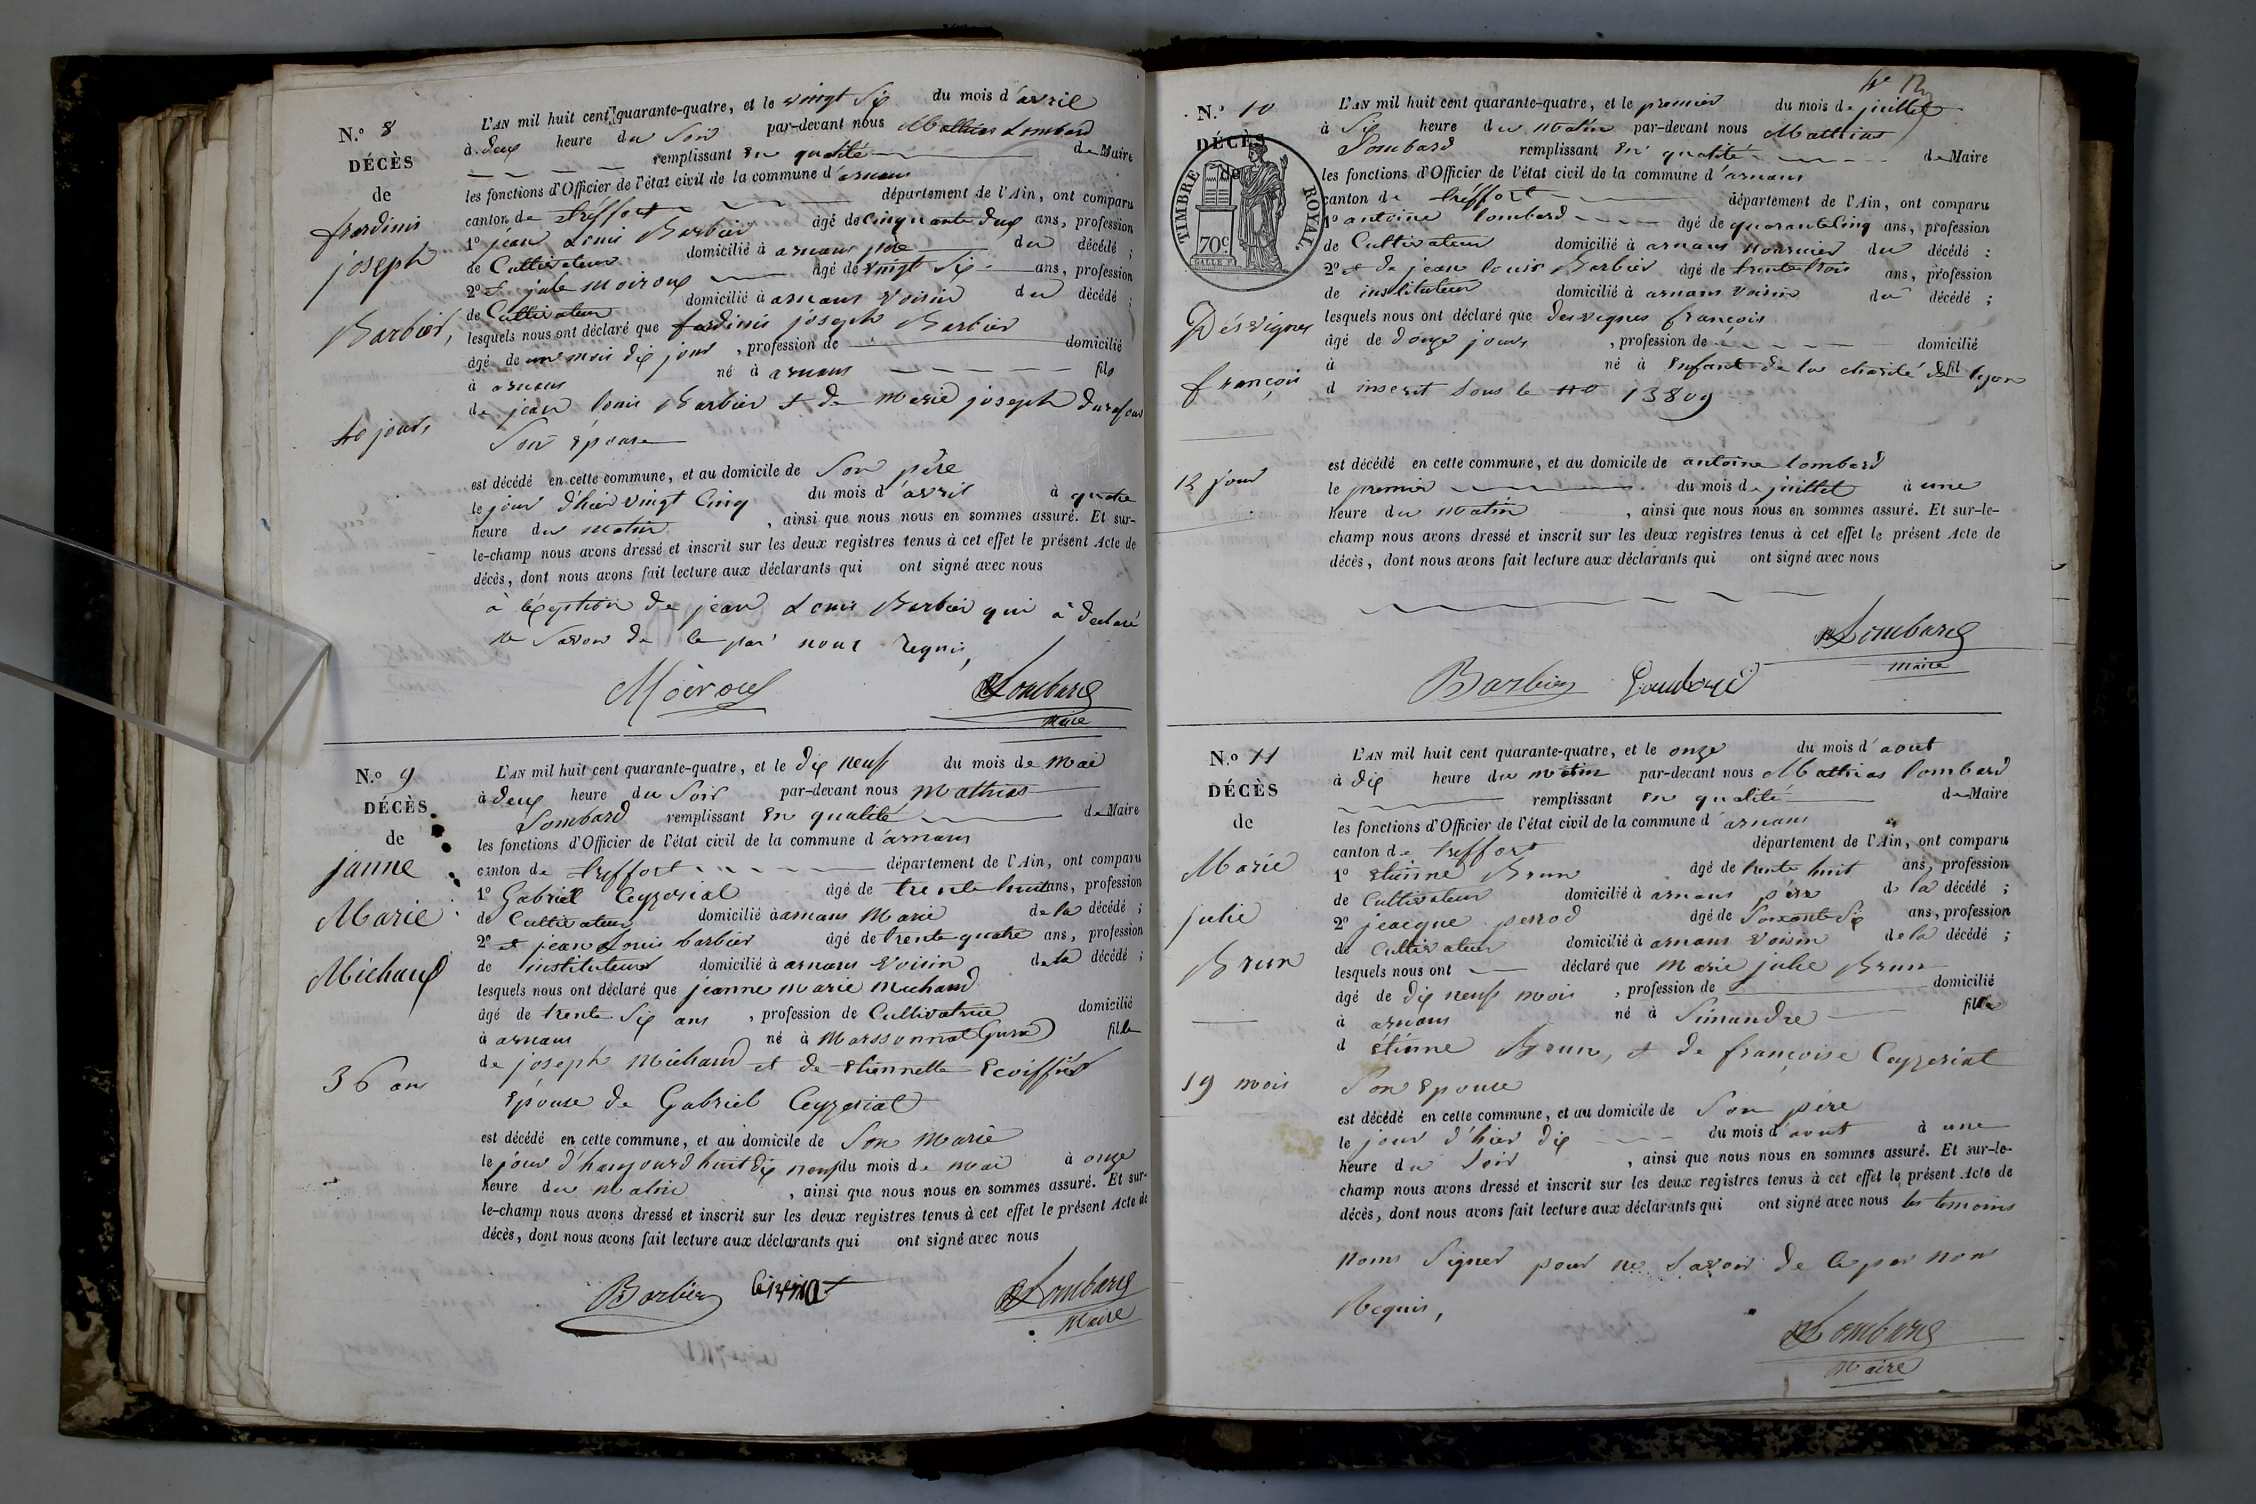 N.º 8
DÉCÈS
de
fardinis
joseph
Barbier,
40 jours
L'AN mil huit cent quarante-quatre, et le vingt Six du mois d'avril
à deux heure du Soir par-devant nous Mathias Lombard
remplissant En qualité de Maire
les fonctions d'Officier de l'état civil de la commune d'arnans
canton de treffort département de l'Ain, ont comparu
1º jean Louis Barbier âgé de Cinquante deux ans, profession
de Cultivateur domicilié à arnans père du décédé ;
2º et jule moiroux âgé de vingt Six ans, profession
de Cultivateur domicilié à arnans voisin du décédé ;
lesquels nous ont déclaré que fardinis joseph Barbier
âgé de un mois dix jours, profession de domicilié
à arnans né à arnans fils
de jean louis Barbier et de marie joseph
Son épouse
est décédé en cette commune, et au domicile de Son père
le jour d'hier vingt Cinq du mois d'avril à quatre
heure du matin, ainsi que nous nous en sommes assuré. Et sur-
le-champ nous avons dressé et inscrit sur les deux registres tenus à cet effet le présent Acte de
décès, dont nous avons fait lecture aux déclarants qui ont signé avec nous
à léxeption de jean Louis Barbier qui à declaré
ne Savoir de ce par nous Requis,
Moiroux Lombard
maire
N.º 9
DÉCÈS
de
janne
Marie
Michaud
36 ans
L'AN mil huit cent quarante-quatre, et le dix neuf du mois de mai
à deux heure du Soir par-devant nous mathias
Lombard remplissant En qualité de Maire
les fonctions d'Officier de l'état civil de la commune d'arnans
canton de treffort département de l'Ain, ont comparu
1º Gabriel Ceyzeriat âgé de trente huit ans, profession
de Cultivateur domicilié à arnans Marie de la décédé ;
2º et jean Louis barbier âgé de trente quatre ans, profession
de instituteur domicilié à arnans voisin de la décédé ;
lesquels nous ont déclaré que jeanne marie michaud
âgé de trente Six ans, profession de Cultivatrice domicilié
à arnans né à Marssonnat fille
de joseph Michaud et de Etiennette Ecoiffier
Epouse de Gabriel Ceyzeriat
est décédé en cette commune, et au domicile de Son Marie
le jour d'haujourd huit dix neuf du mois de mai à onze
heure du matin, ainsi que nous nous en sommes assuré. Et sur-
le-champ nous avons dressé et inscrit sur les deux registres tenus à cet effet le présent Acte de
décès, dont nous avons fait lecture aux déclarants qui ont signé avec nous
Barbier Lombard
Maire
N.º 10
DÉCÈS
de
TIMBRE ROYAL
70c
Désvignes
françois
12 jour
L'AN mil huit cent quarante-quatre, et le premier du mois de juillet
à Six heure du matin par-devant nous Mathias
Lombard remplissant En qualité de Maire
les fonctions d'Officier de l'état civil de la commune d'arnans
canton de tréffort département de l'Ain, ont comparu
1º antoine lombard âgé de quarante Cinq ans, profession
de Cultivateur domicilié à arnans nourricier du décédé :
2º et de jean louis Barbier âgé de trente trois ans, profession
de instituteur domicilié à arnans voisin du décédé ;
lesquels nous ont déclaré que desvignes françois
âgé de douze jours, profession de domicilié
à né à Enfant de la charité de lyon fil
d inscrit Sous le nº 13809
est décédé en cette commune, et au domicile de antoine lombard
le premier du mois de juillet à une
heure du matin, ainsi que nous nous en sommes assuré. Et sur-le-
champ nous avons dressé et inscrit sur les deux registres tenus à cet effet le présent Acte de
décès, dont nous avons fait lecture aux déclarants qui ont signé avec nous
Lombard
maire
Barbier
N.º 11
DÉCÈS
de
Marie
julie
Brun
19 mois
L'AN mil huit cent quarante-quatre, et le onze du mois d'aout
à dix heure du matin par-devant nous Mathias lombard
remplissant En qualité de Maire
les fonctions d'Officier de l'état civil de la commune d'arnans
canton de treffort département de l'Ain, ont comparu
1º Etienne Brun âgé de trente huit ans, profession
de Cultivateur domicilié à arnans père de la décédé ;
2º jeacque perrod âgé de Soixante Six ans, profession
de Cultivateur domicilié à arnans voisin de la décédé ;
lesquels nous ont déclaré que marie julie Brun
âgé de dix neuf mois, profession de domicilié
à arnans né à Simandre fille
d Etienne Brun, et de françoise Ceyzeriat
Son Epouse
est décédé en cette commune, et au domicile de Son père
le jour d'hier dix du mois d'aout à une
heure du Soir, ainsi que nous nous en sommes assuré. Et sur-le-
champ nous avons dressé et inscrit sur les deux registres tenus à cet effet le présent Acte de
décès, dont nous avons fait lecture aux déclarants qui ont signé avec nous les temoins
nons Signer pour ne Savoir de ce par nous
Requis,
Lombard
Maire